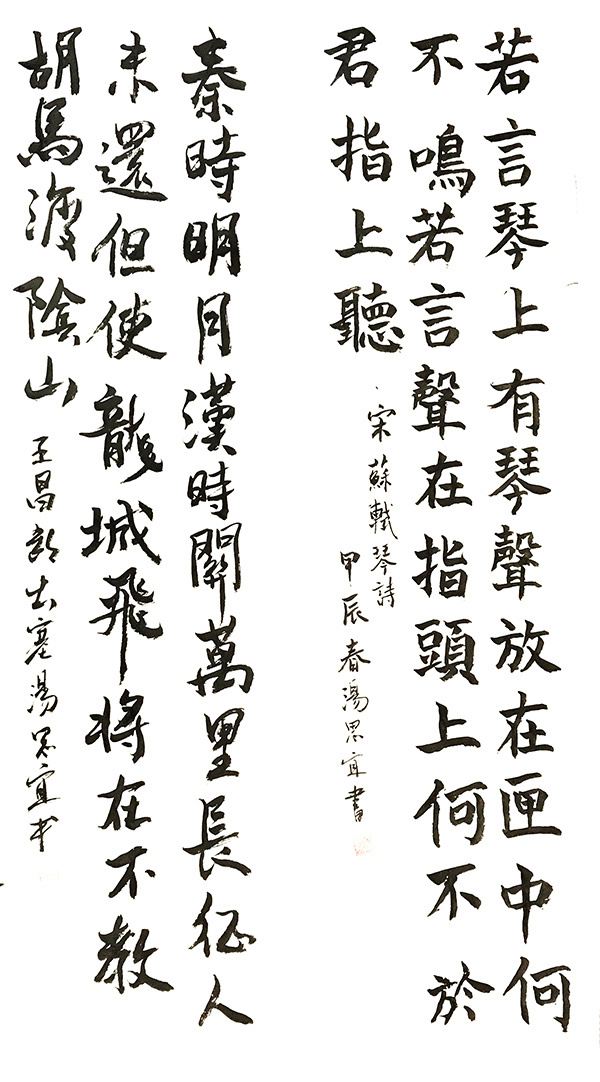 若言琴上有琴聲放在匣中何
不鳴若言聲在指頭上何不於
君指上聽
宋蘇軾琴詩
甲辰春湯思宜書
秦時明月漢時關萬里長征人
未還但使龍城飛將在不教
胡馬渡陰山
王昌龄出塞湯思宜书